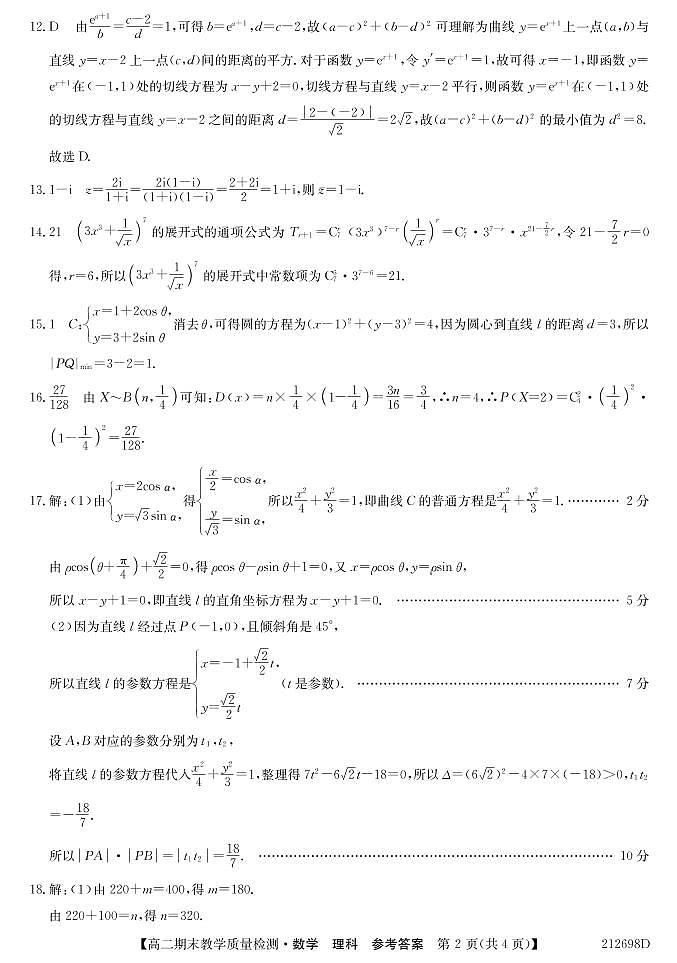 12. D　由$\frac{e^{a+1}}{b}=\frac{c-2}{d}=1$,可得$b=e^{a+1}$,$d=c-2$,故$(a-c)^2+(b-d)^2$ 可理解为曲线 $y=e^{x+1}$上一点$(a,b)$与
直线 $y=x-2$ 上一点$(c,d)$间的距离的平方.对于函数 $y=e^{x+1}$,令 $y'=e^{x+1}=1$,故可得 $x=-1$,即函数 $y=$
$e^{x+1}$在$(-1,1)$处的切线方程为 $x-y+2=0$,切线方程与直线 $y=x-2$ 平行,则函数 $y=e^{x+1}$在$(-1,1)$处
的切线方程与直线 $y=x-2$ 之间的距离 $d=\frac{|2-(-2)|}{\sqrt{2}}=2\sqrt{2}$,故$(a-c)^2+(b-d)^2$ 的最小值为 $d^2=8$.
故选 D.
13. $1-i$　$z=\frac{2i}{1+i}=\frac{2i(1-i)}{(1+i)(1-i)}=\frac{2+2i}{2}=1+i$,则 $\bar{z}=1-i$.
14. 21　$\left(3x^3+\frac{1}{\sqrt{x}}\right)^7$ 的展开式的通项公式为 $T_{r+1}=C_7^r(3x^3)^{7-r}\left(\frac{1}{\sqrt{x}}\right)^r=C_7^r·3^{7-r}·x^{21-\frac{7}{2}r}$,令 $21-\frac{7}{2}r=0$
得,$r=6$,所以$\left(3x^3+\frac{1}{\sqrt{x}}\right)^7$ 的展开式中常数项为 $C_7^6·3^{7-6}=21$.
15. 1　$C:\begin{cases}x=1+2\cos θ,\\y=3+2\sin θ\end{cases}$ 消去 $θ$,可得圆的方程为$(x-1)^2+(y-3)^2=4$,因为圆心到直线 $l$ 的距离 $d=3$,所以
$|PQ|_{min}=3-2=1$.
16. $\frac{27}{128}$　由 $X\sim B\left(n,\frac{1}{4}\right)$可知:$D(x)=n×\frac{1}{4}×\left(1-\frac{1}{4}\right)=\frac{3n}{16}=\frac{3}{4}$,∴$n=4$,∴$P(X=2)=C_4^2·\left(\frac{1}{4}\right)^2·$
$\left(1-\frac{1}{4}\right)^2=\frac{27}{128}$.
17. 解:(1)由$\begin{cases}x=2\cos α,\\y=\sqrt{3}\sin α,\end{cases}$得$\begin{cases}\frac{x}{2}=\cos α,\\\frac{y}{\sqrt{3}}=\sin α,\end{cases}$所以$\frac{x^2}{4}+\frac{y^2}{3}=1$,即曲线 $C$ 的普通方程是$\frac{x^2}{4}+\frac{y^2}{3}=1$. ………… 2 分
由 $ρ\cos\left(θ+\frac{π}{4}\right)+\frac{\sqrt{2}}{2}=0$,得 $ρ\cos θ-ρ\sin θ+1=0$,又 $x=ρ\cos θ$,$y=ρ\sin θ$,
所以 $x-y+1=0$,即直线 $l$ 的直角坐标方程为 $x-y+1=0$. ………………………………………… 5 分
(2)因为直线 $l$ 经过点 $P(-1,0)$,且倾斜角是 $45°$,
所以直线 $l$ 的参数方程是$\begin{cases}x=-1+\frac{\sqrt{2}}{2}t,\\y=\frac{\sqrt{2}}{2}t\end{cases}$ ($t$ 是参数). ………………………………………… 7 分
设 $A$,$B$ 对应的参数分别为 $t_1$,$t_2$,
将直线 $l$ 的参数方程代入$\frac{x^2}{4}+\frac{y^2}{3}=1$,整理得 $7t^2-6\sqrt{2}t-18=0$,所以 $Δ=(6\sqrt{2})^2-4×7×(-18)>0$,$t_1t_2$
$=-\frac{18}{7}$.
所以$|PA|·|PB|=|t_1t_2|=\frac{18}{7}$. ………………………………………… 10 分
18. 解:(1)由 $220+m=400$,得 $m=180$.
由 $220+100=n$,得 $n=320$.
【高二期末教学质量检测·数学　理科　参考答案　第 2 页(共 4 页)】　212698D